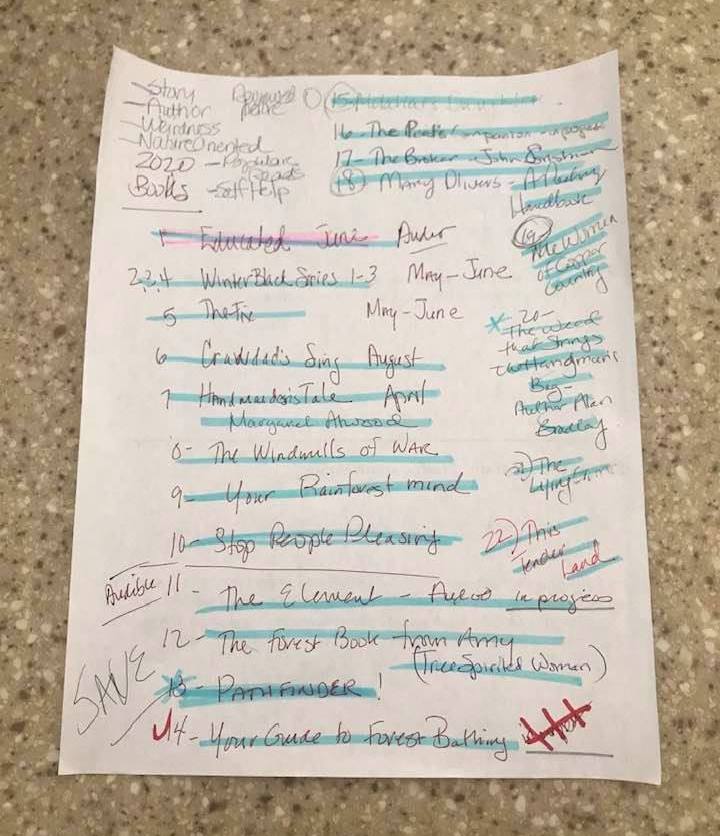 Story
Author
Weirdness
Nature Oriented
2020 - Popular
Reads
Books - Self Help
15-
16 - The Poet's Companion -
17 - The Broker - John
18) Mary Olivers - A Poetry
Handbook
1 Educated June
2,3,4 Winter Black Series 1-3 May - June
5 The Fix May - June
6 Crawdad's Sing August
7 Handmaiden's Tale April
Margaret Atwood
8- The Windmills of WAR
9- Your Rainforest mind
10- Stop People Pleasing
Audible 11 - The Element - in progress
12- The Forest Book from Amy
(Tree Spirited Woman)
SAVE
13 - PATHFINDER!
14- Your Guide to Forest Bathing
19-
The Women
of
Country
20-
The Weed
that Strings
the Hangman's
Bag -
Author Alan
Bradley
21) The
Lying
22) This
Tender
Land